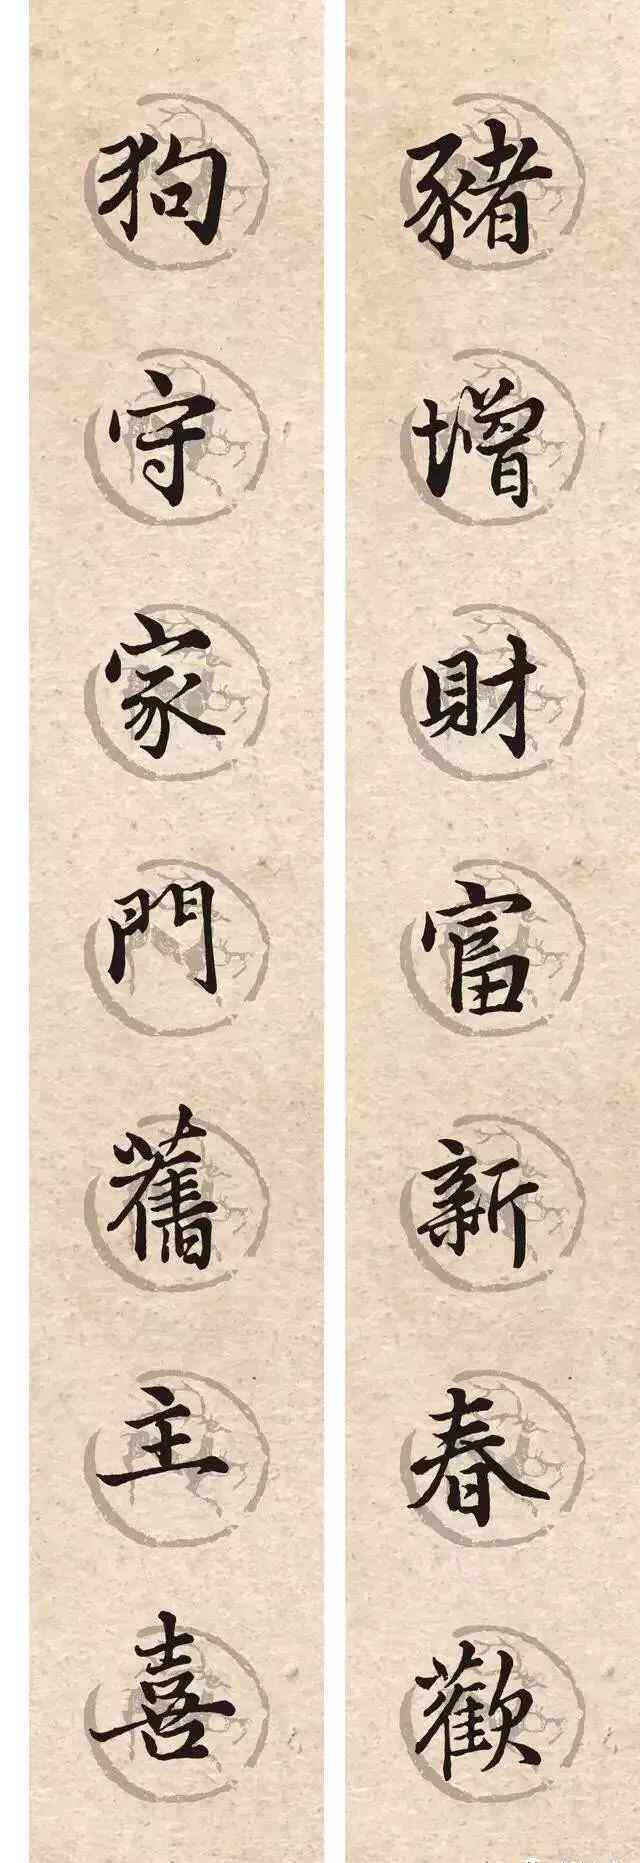 豬增財富新春歡
狗守家門舊主喜